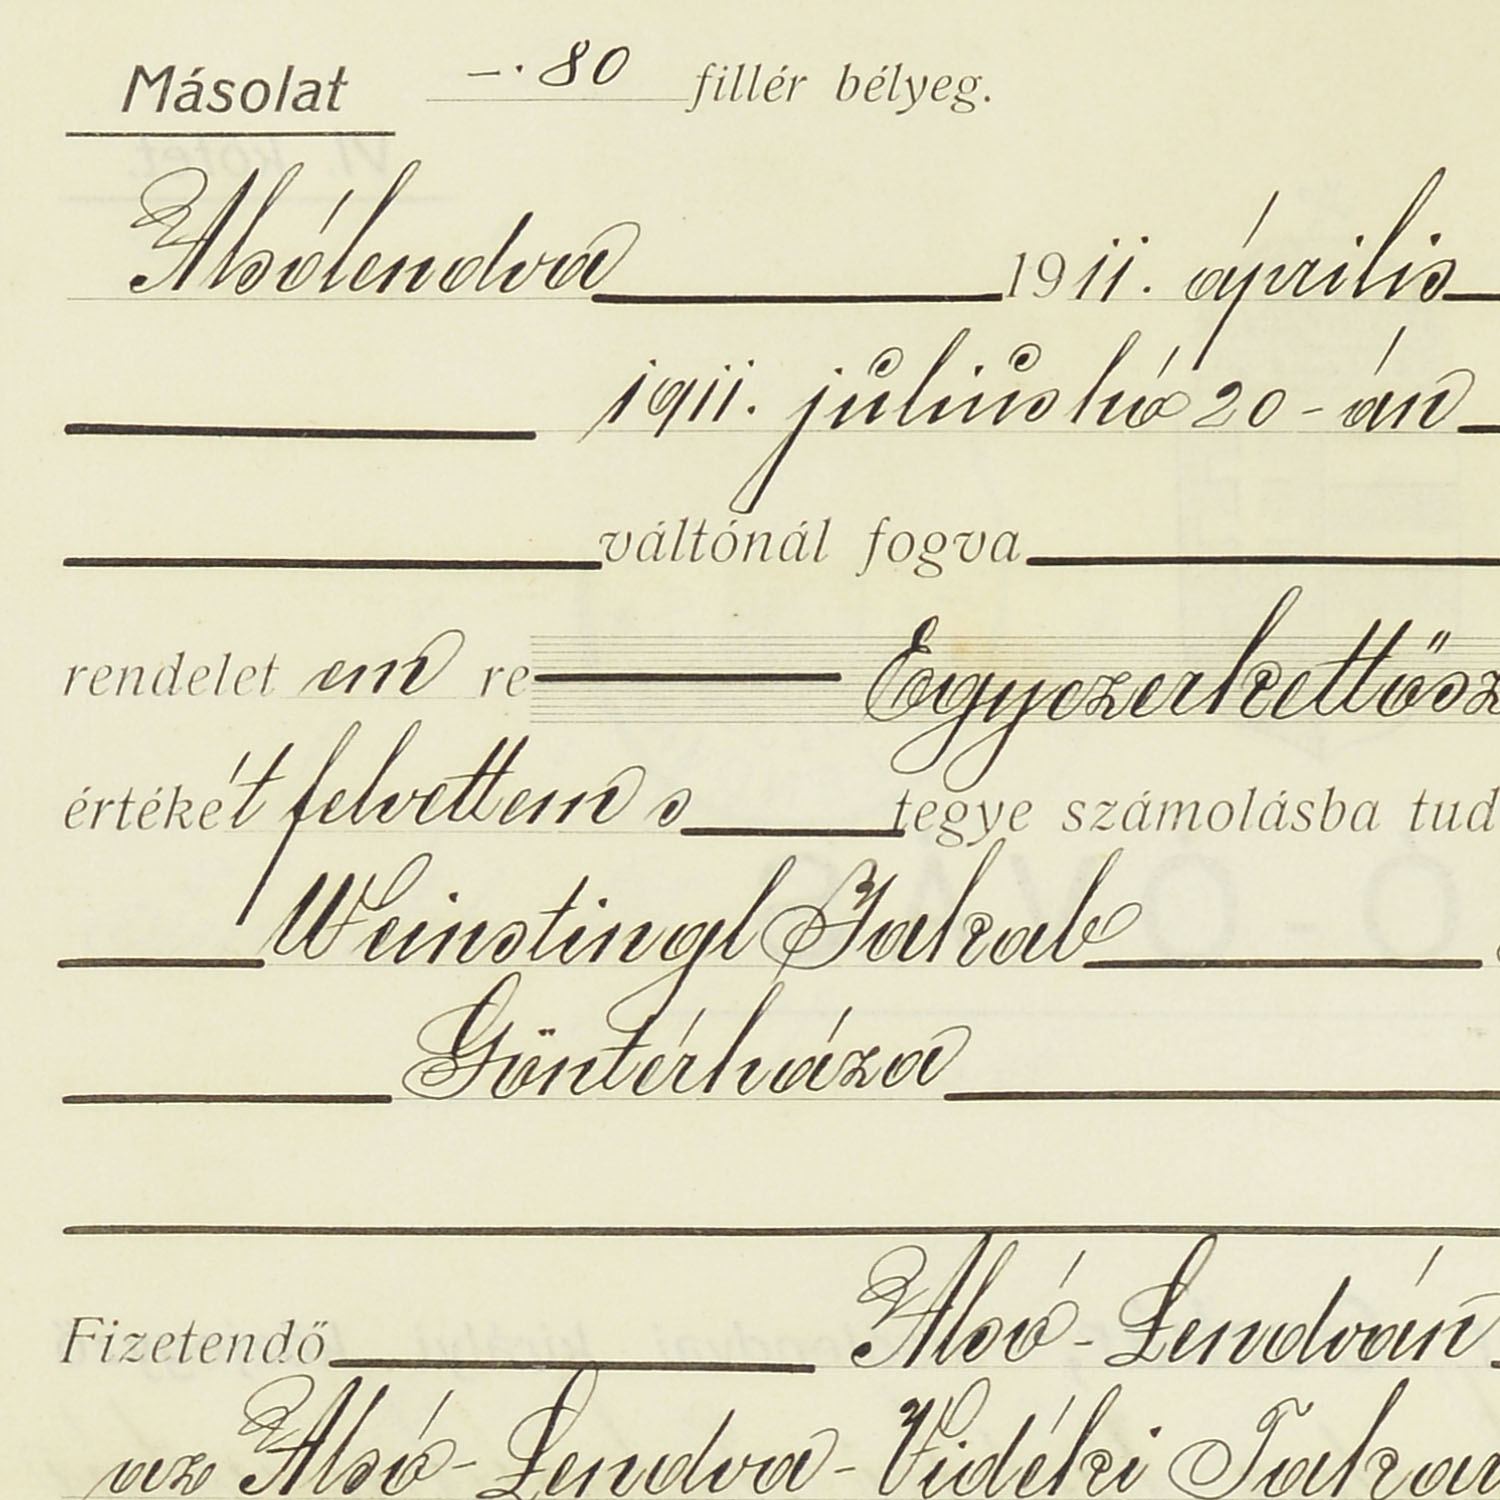 Másolat –·80 fillér bélyeg.
Alsólendva 1911. április
1911. július hó 20-án
váltónál fogva
rendelet em re Egyezerkettősz
értékét felvettem s tegye számolásba tud
Weinstingl Jakab
Göntérháza
Fizetendő Alsó-Lendván
az Alsó-Lendva-Vidéki Takar